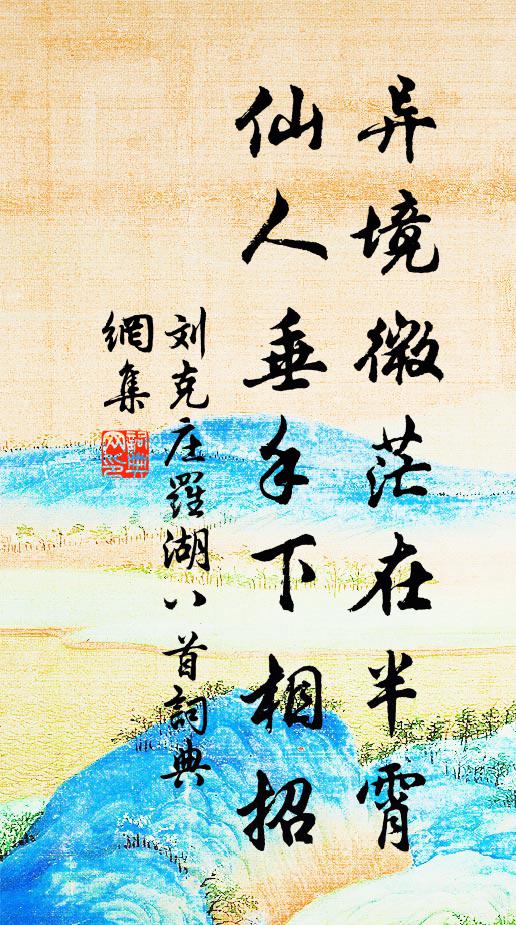 异境微茫在半霄
仙人垂手下相招
刘克庄羅湖八首詞典
網集